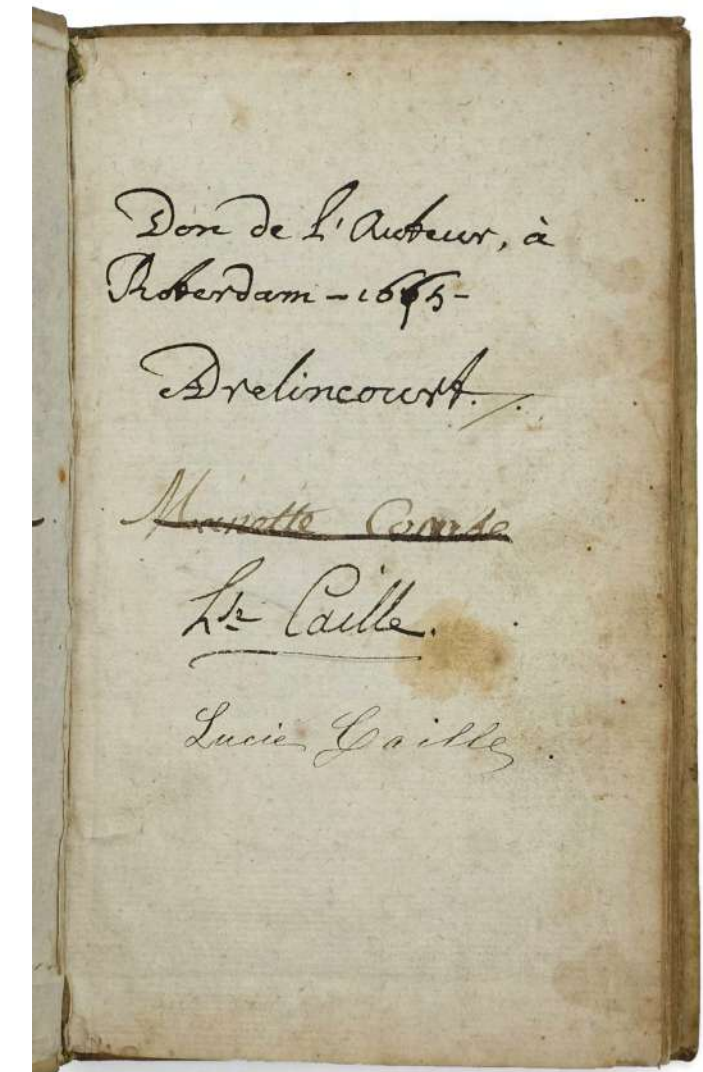 Don de l'Auteur, à
Roterdam - 1665 -
Drelincourt.
Manette Combe
Caille.
Lucie Caille.